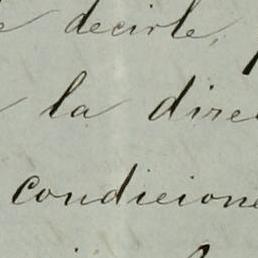 decirle,
la dire
condicione